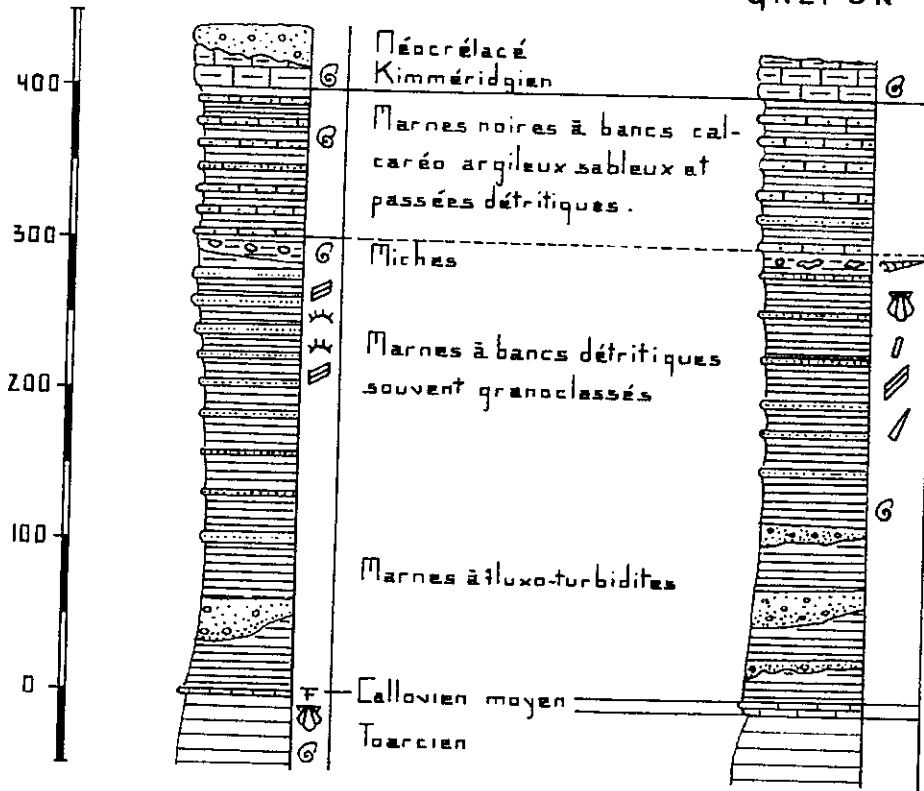 400
300
200
100
0
Néocrélacé
Kimméridgien
Marnes noires à bancs cal-
caréo argileux sableux et
passées détritiques.
Miches
Marnes à bancs détritiques
souvent granoclassés
Marnes à fluxo-turbidites
F
Callovien moyen
Toarcien